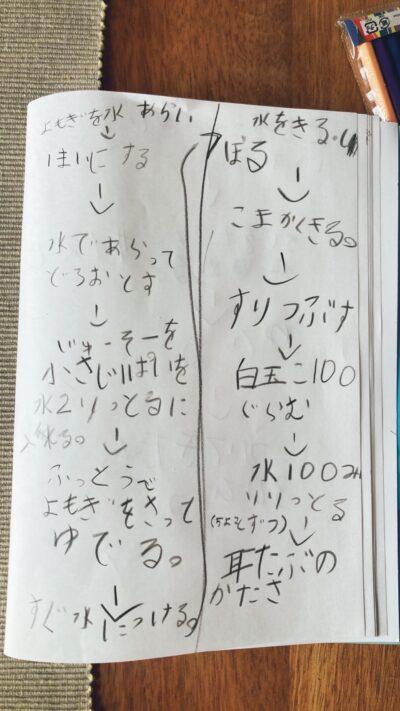 よもぎを水 あらい
はいにする
↓
水であらって
どろおとす
↓
じゅーそーを
小さじ1ぱいを
水2りっとるに
入れる。
↓
ふっとうで
よもぎをさって
ゆでる。
↓
すぐ水につける。
水をきる・し
ぼる
↓
こまかくきる。
↓
すりつぶす
↓
白玉こ100
ぐらむ
↓
水100み
りりっとる
(ちょとずつ)
↓
耳たぶの
かたさ